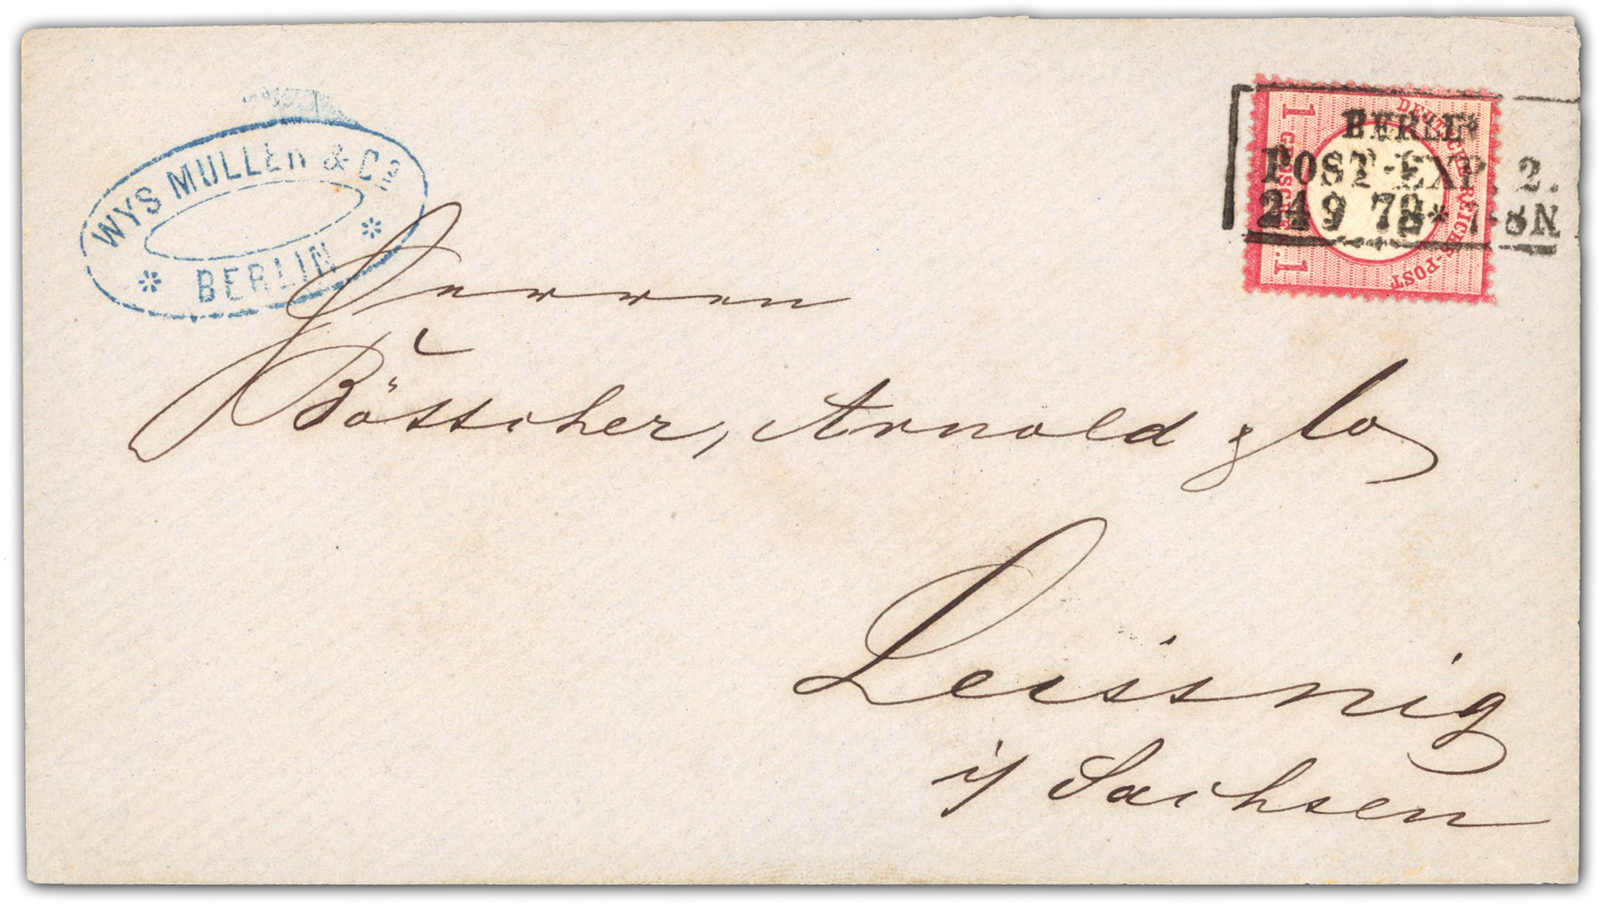 WYS MULLER & Co
* BERLIN *
DEUTSCHE REICHS-POST
1 GROSCH. 1
BERLIN
POST-EXP. 2.
24 9 7-8N
Herren
Böttcher, Arnold & Co
Leissnig
i/ Sachsen